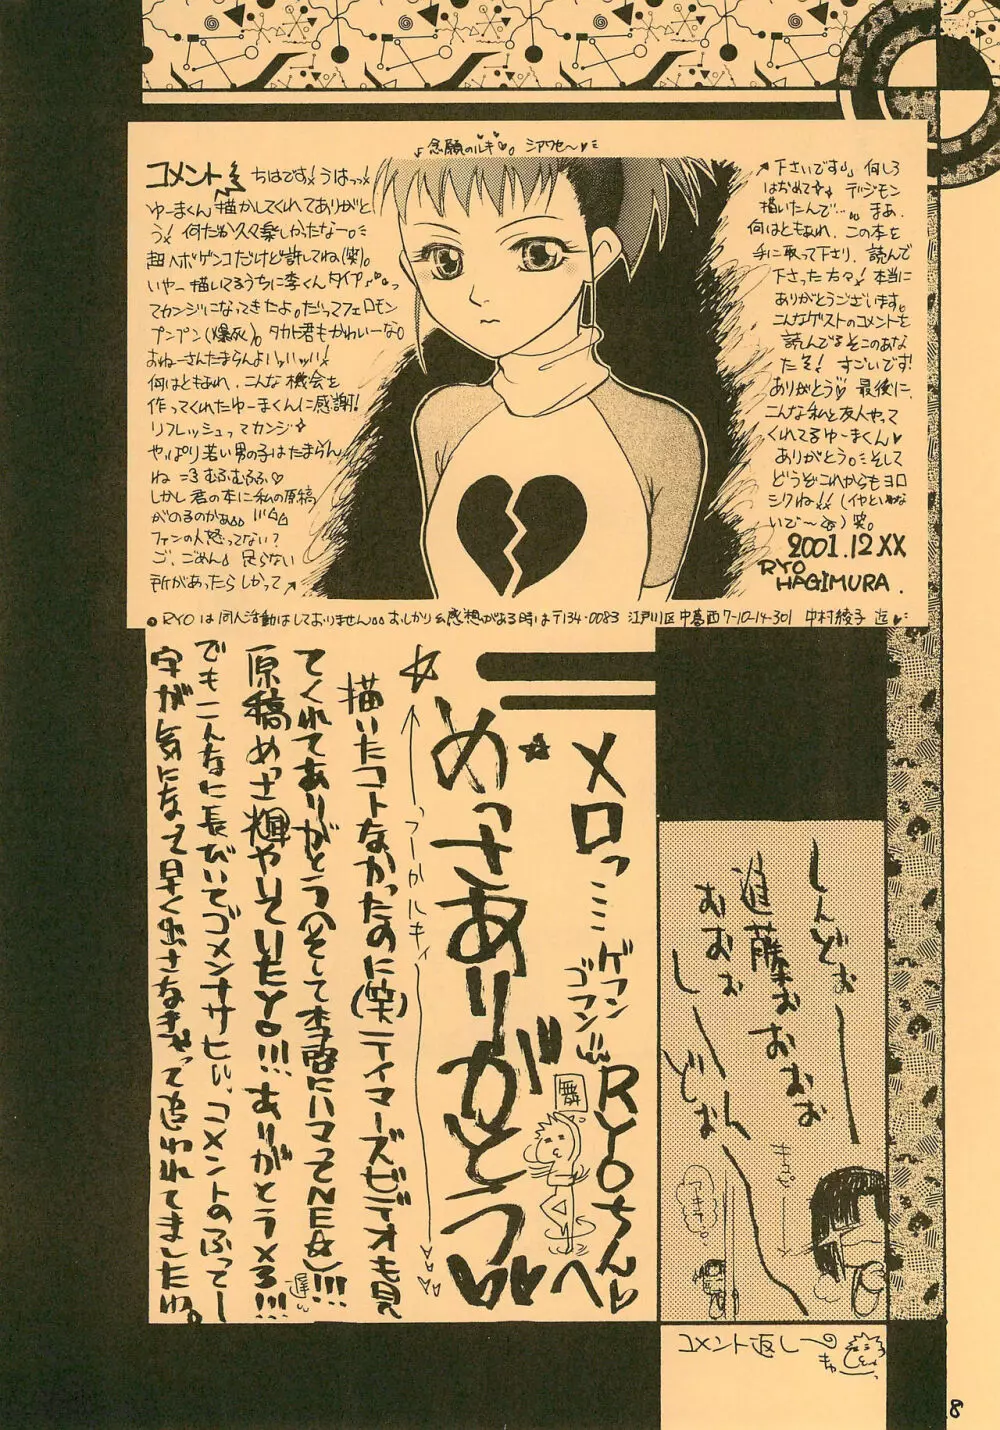 ♪念願のルキ♥。 シアワセ〜♥
コメント
ちはです!うはっっ!
ゆーまくん描かしてくれてありがと
う! 何だか久々楽しかったなー。
超ヘボゲンコだけど許してね(笑)。
いやー描いてるうちに李くんタイプ♪っ
てカンジになってきたよ。だってフェロモン
プンプン(爆死)。タカト君もかわいーな。
おねーさんたまらんよハァハァ!
何はともあれ、こんな機会を
作ってくれたゆーまくんに感謝!
リフレッシュってカンジ☆
やっぱり若い男の子はたまらん
ね =3 むふむふふ♡
しかし君の本に私の原稿
がのるのかぁ
ファンの人怒ってない?
ご、ごめん♪ 足らない
所があったらしかって↗
↗下さいです♪ 何しろ
はじめて デジモン
描いたんで…。まあ、
何はともあれ、この本を
手に取って下さり、読んで
下さった方々! 本当に
ありがとうございます。
こんなゲストのコメントを
読んでるそこのあな
たそ! すごいです!
ありがとう♡ 最後に、
こんな私と友人やって
くれてるゆーまくん♥
ありがとう。そして
どうぞこれからもヨロ
シクね!!(イヤといわな
いで〜)笑。
2001.12XX
RYO
HAGIMURA.
●RYOは同人活動はしておりません おしかり&感想がある時は〒134-0083 江戸川区中葛西7-10-14-301 中村綾子 迄♥
しんどぉー
進藤ぉおおぉ
おおぉ
しーんどぉ
キュピーン
メロっミミ
ゲフンゴフン
RYOちんへ♡
舞
めっさありがとう♥♥
☆←うーかルキィ→♡♡
描いたコトなかったのに(笑)テイマーズビデオも見
てくれてありがとう(そして李君にハマってNE☆)!!!
原稿めっさ輝やいていたYO!!!ありがとうメろ!!!
遅い
でもこんなに長びいてゴメンナサヒ… コメントのふってー
字が気になって早く出さなきゃって追われてましたわ。
コメント返し〜
きゅ
8